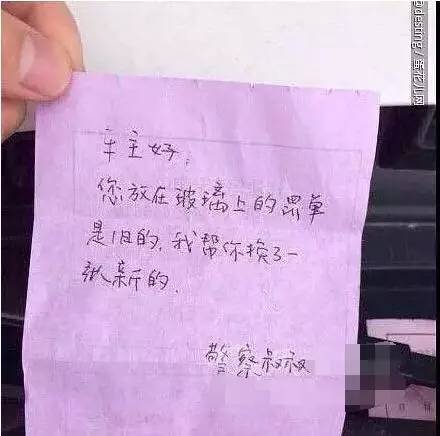 车主好;
您放在玻璃上的罚单
是旧的,我帮你换了一
张新的.
警察叔叔